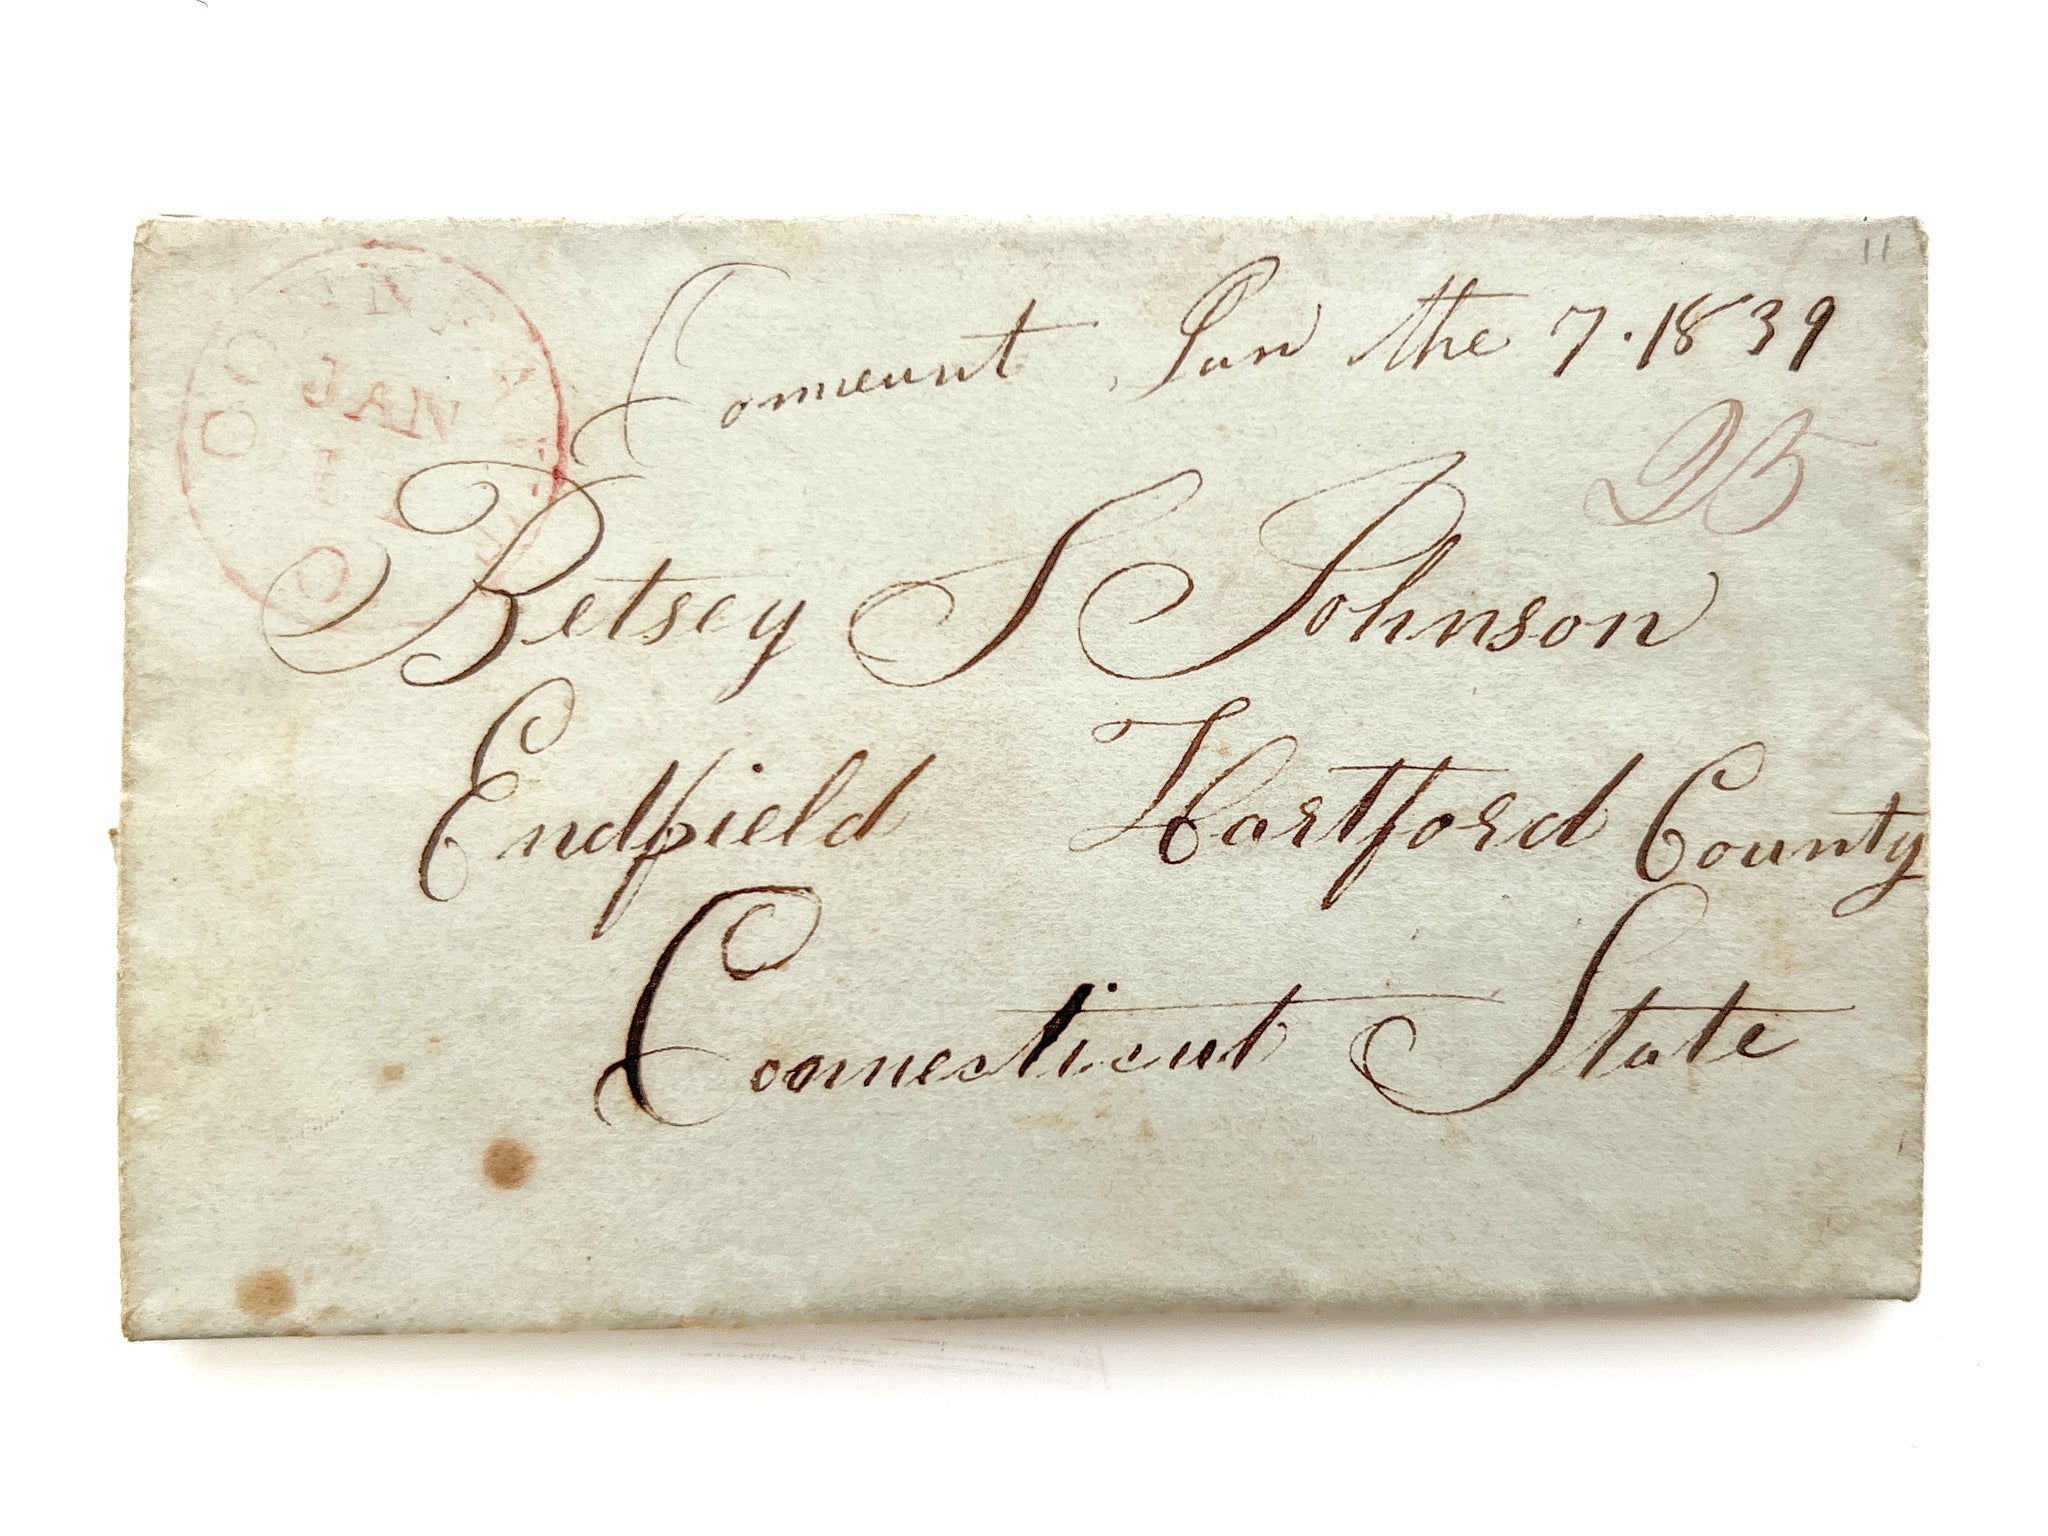 11
Conneaut Jan the 7. 1839
CONNEAUT
JAN
O
25
Betsey S Johnson
Endfield Hartford County
Connecticut State